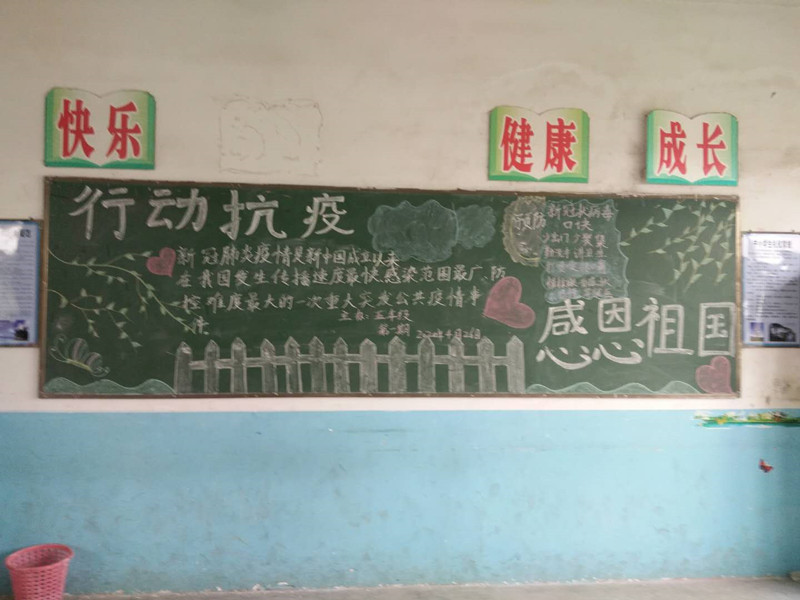 快乐
健康
成长
行动抗疫
新冠肺炎疫情是新中国成立以来
在我国发生传播速度最快感染范围最广、防
控难度最大的一次重大突发公共疫情事
件
主办:五年级
第一期 2020年4月28日
预防
新冠状病毒
口诀
感恩祖国